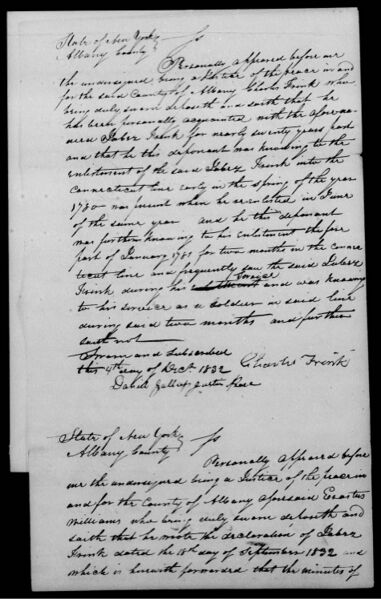 State of New York
Albany County } ss
Personally appeared before me
the undersigned being a Justice of the peace in and
for the said County of Albany Charles Frink who
being duly sworn deposeth and saith that he
has been personally acquainted with the afore na-
med Jabez Frink for nearly seventy years past
and that he this deponant was knowing to the
enlistment of the said Jabez Frink into the
Connecticut line early in the spring of the year
1780 was present when he re enlisted in June
of the same year and he the deponant
was further knowing to his enlistment the fore
part of January 1781 for two months in the connec
ticut line and frequently saw the said Jabez
Frink during his service and was knowing
to his service as a Soldier in said line
during said two months and further
saith not
Sworn and Subscribed
this 4th day of Dect 1832 Charles Frink
David Gallup Justice Peace
State of New York
Albany County } ss
Personally appeared before
me the undersigned being a Justice of the peace in
and for the County of Albany aforesaid Erastus
Williams who being duly sworn deposeth and
saith that he wrote the declaration of Jabez
Frink dated the 18th day of September 1832 and
which is herewith forwarded that the minutes of